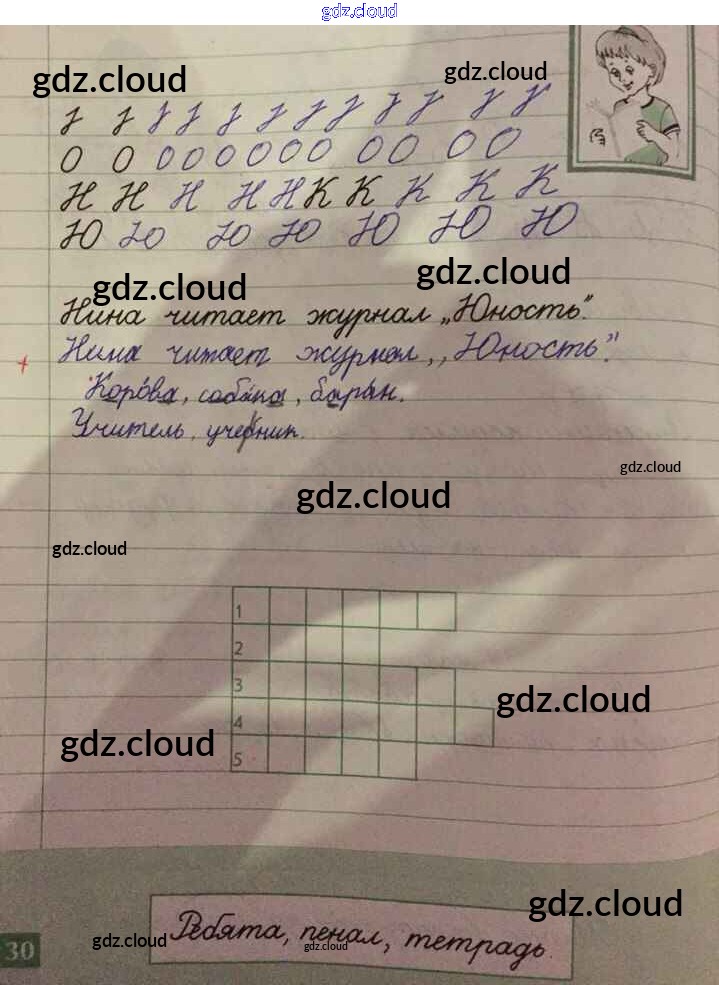 gdz.cloud
gdz.cloud
gdz.cloud
О О О О О О О О О О О О
Н Н Н Н Н К К К К К
Ю Ю Ю Ю Ю Ю Ю
gdz.cloud
gdz.cloud
Нина читает журнал „Юность".
+ Нина читает журнал „Юность".
Корова, собака, баран.
Учитель, учебник.
gdz.cloud
gdz.cloud
gdz.cloud
1
2
3
gdz.cloud
4
gdz.cloud
5
gdz.cloud
Ребята, пенал, тетрадь.
gdz.cloud
gdz.cloud
30